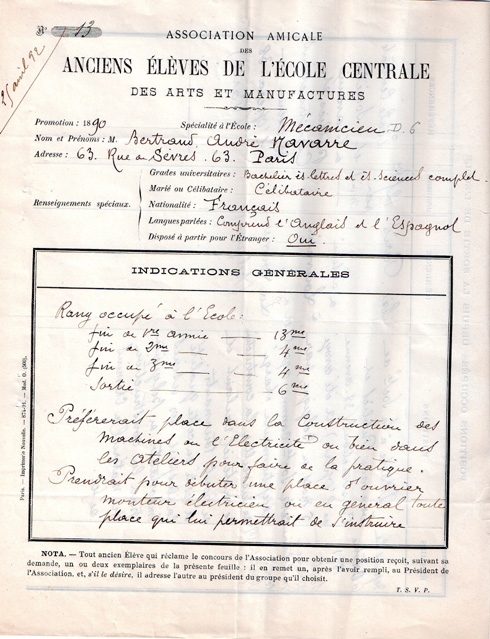 N° 13
25 avril 92
ASSOCIATION AMICALE
DES
ANCIENS ÉLÈVES DE L'ÉCOLE CENTRALE
DES ARTS ET MANUFACTURES
Promotion : 1890 Spécialité à l'École : Mécanicien D. 6
Nom et Prénoms : M. Bertrand André Navarre
Adresse : 63. Rue de Sèvres. 63. Paris
Renseignements spéciaux.
Grades universitaires : Bachelier ès lettres et ès sciences complet.
Marié ou Célibataire : Célibataire
Nationalité : Français
Langues parlées : Comprend l'Anglais et l'Espagnol
Disposé à partir pour l'Étranger : Oui
INDICATIONS GÉNÉRALES
Rang occupé à l'École :
fin de 1re année — 13me
fin de 2me — 4me
fin de 3me — 4me
Sortie — 6me
Préférerait place dans la Construction des
Machines ou l'Electricité ou bien dans
les Ateliers pour faire de la pratique.
Prendrait pour débuter une place d'ouvrier
monteur électricien ou en général toute
place qui lui permettrait de s'instruire
NOTA. — Tout ancien Élève qui réclame le concours de l'Association pour obtenir une position reçoit, suivant sa
demande, un ou deux exemplaires de la présente feuille : il en remet un, après l'avoir rempli, au Président de
l'Association, et, s'il le désire, il adresse l'autre au président du groupe qu'il choisit.
T. S. V. P.